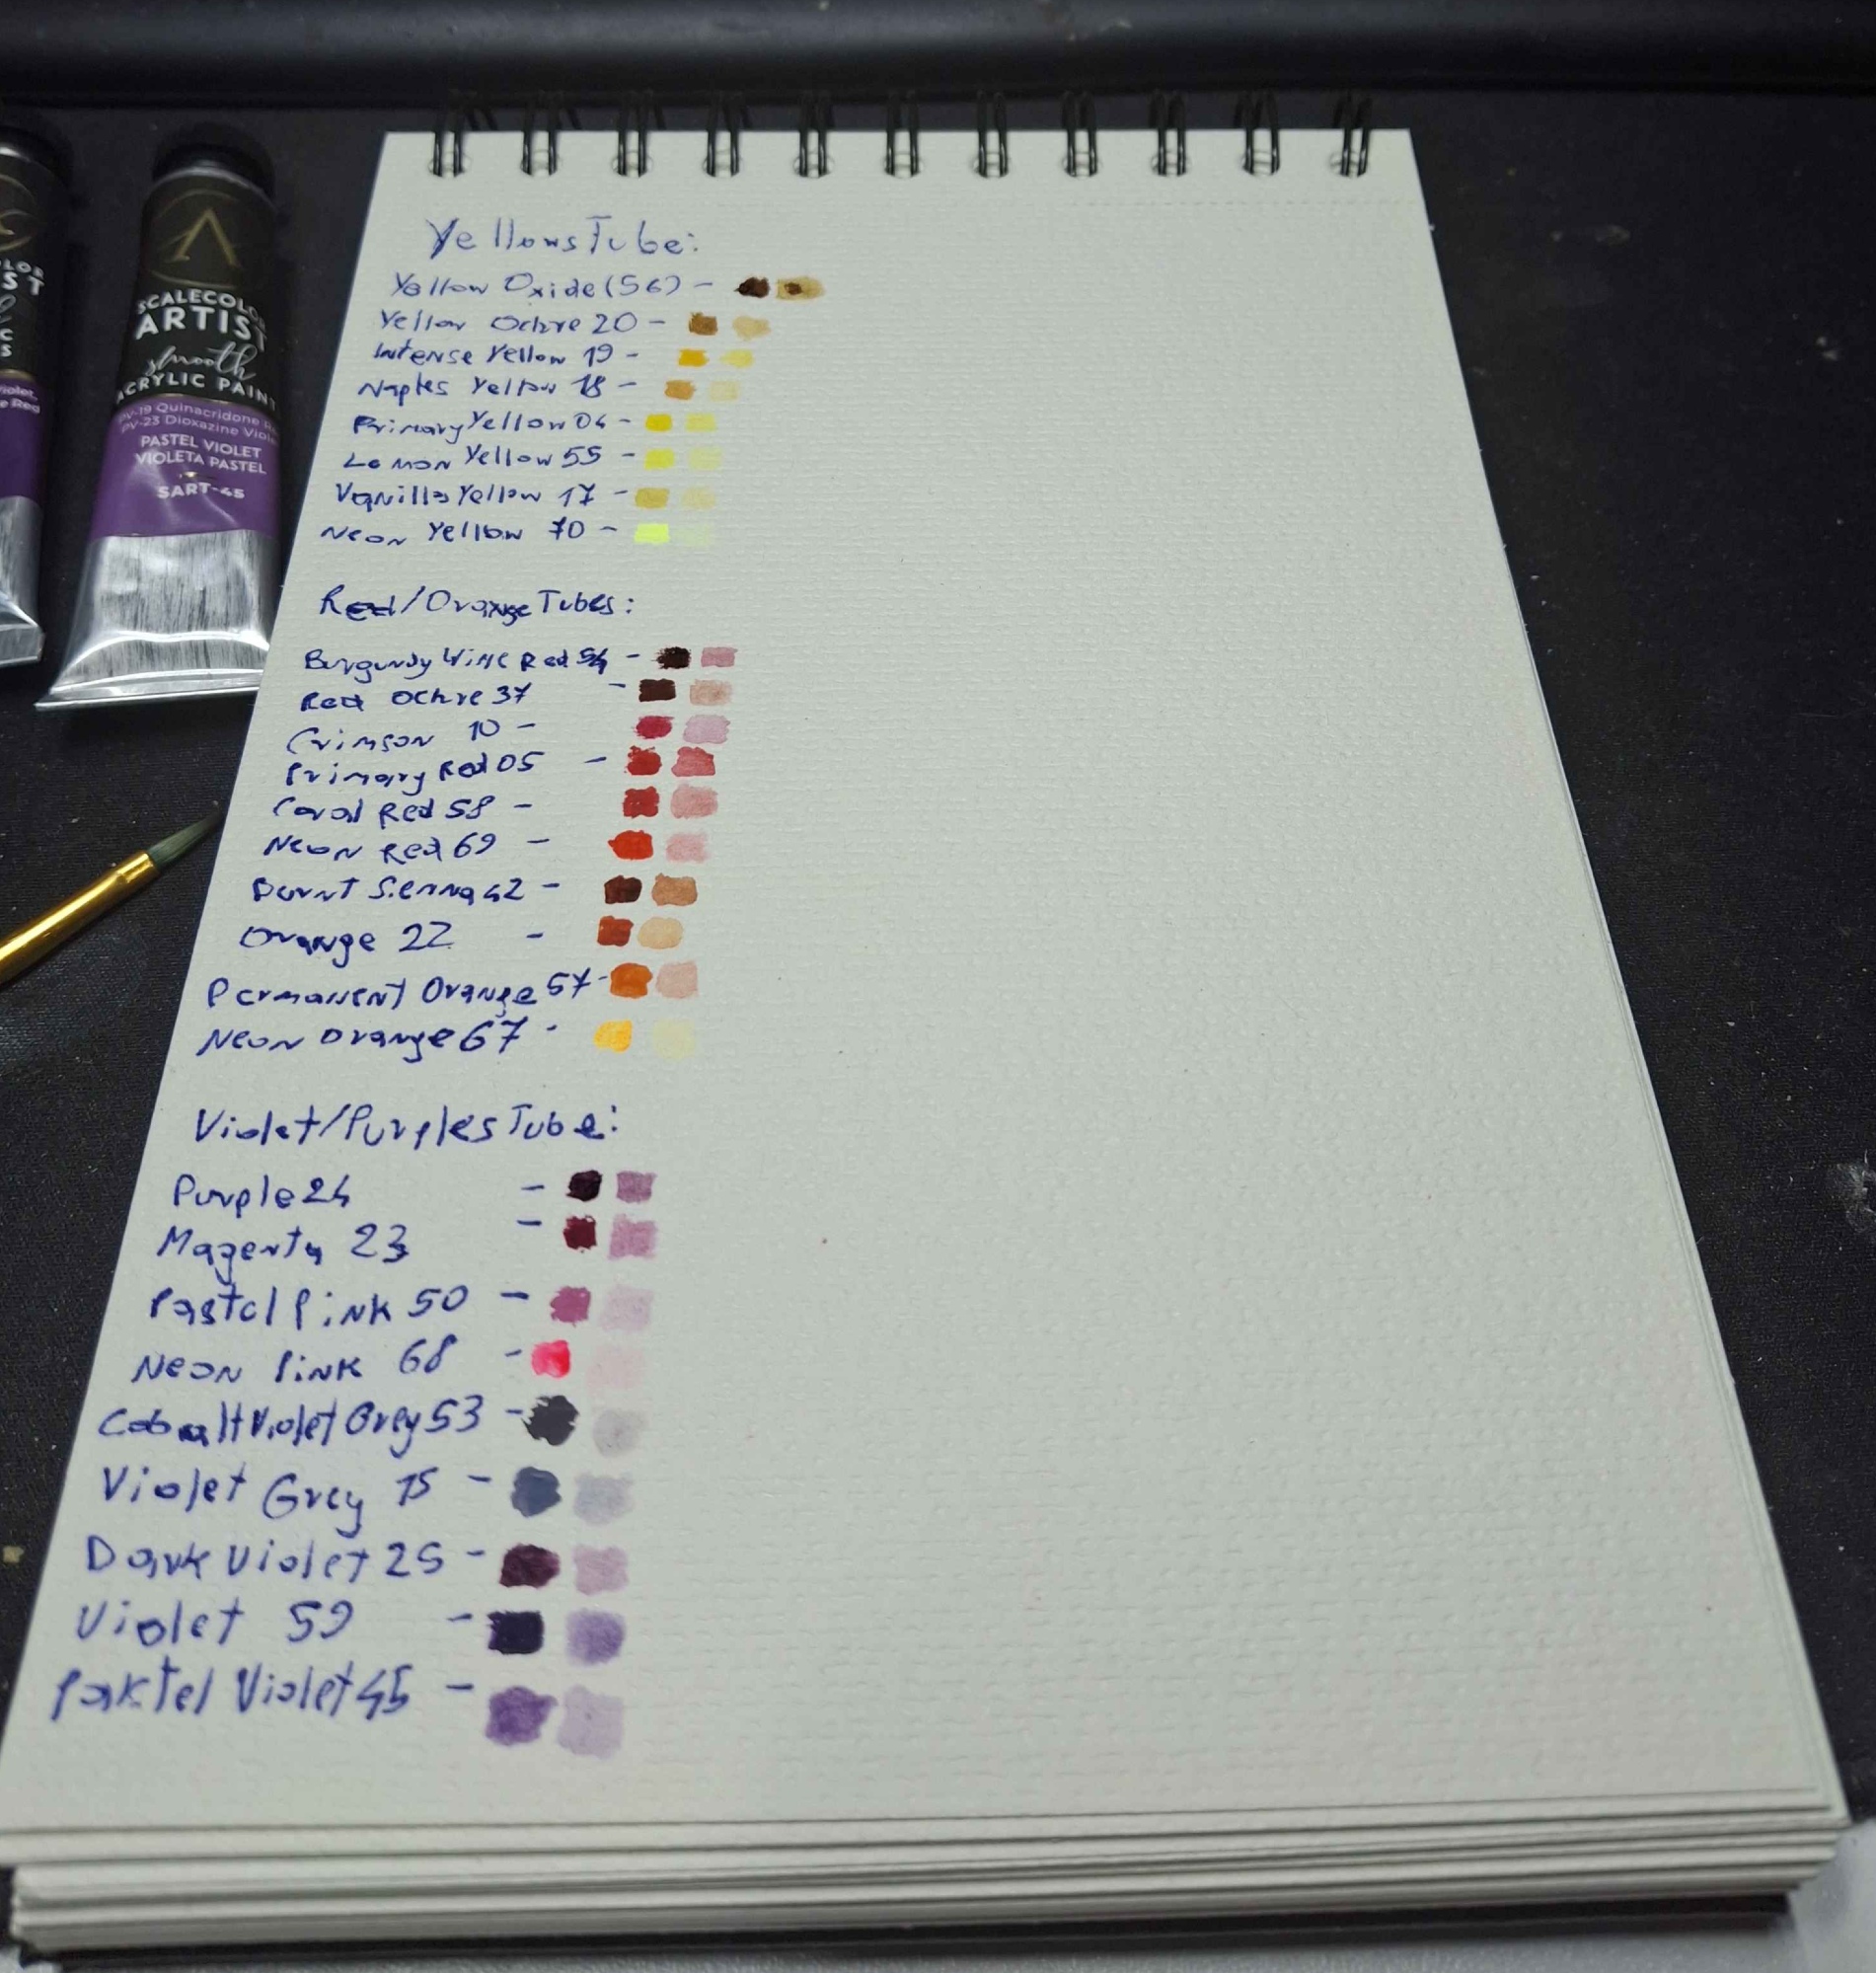 LOR
ST
C
S
Violet,
e Red
SCALECOLOR
ARTIST
smooth
ACRYLIC PAINT
PV-19 Quinacridone
PV-23 Dioxazine Viol
PASTEL VIOLET
VIOLETA PASTEL
SART-45
Yellows Tube:
Yellow Oxide (56) -
Yellow Ochre 20 -
Intense Yellow 19 -
Naples Yellow 18 -
Primary Yellow 04 -
Lemon Yellow 55 -
Vanilla Yellow 17 -
Neon Yellow 70 -
Red/Orange Tubes:
Burgundy Wine Red 54 -
Red Ochre 37 -
Crimson 10 -
Primary Red 05 -
Coral Red 58 -
Neon Red 69 -
Burnt Sienna 42 -
Orange 22 -
Permanent Orange 57 -
Neon Orange 67 -
Violet/Purples Tube:
Purple 24 -
Magenta 23 -
Pastel Pink 50 -
Neon Pink 68 -
Cobalt Violet Grey 53 -
Violet Grey 15 -
Dark Violet 25 -
Violet 59 -
Paktel Violet 45 -